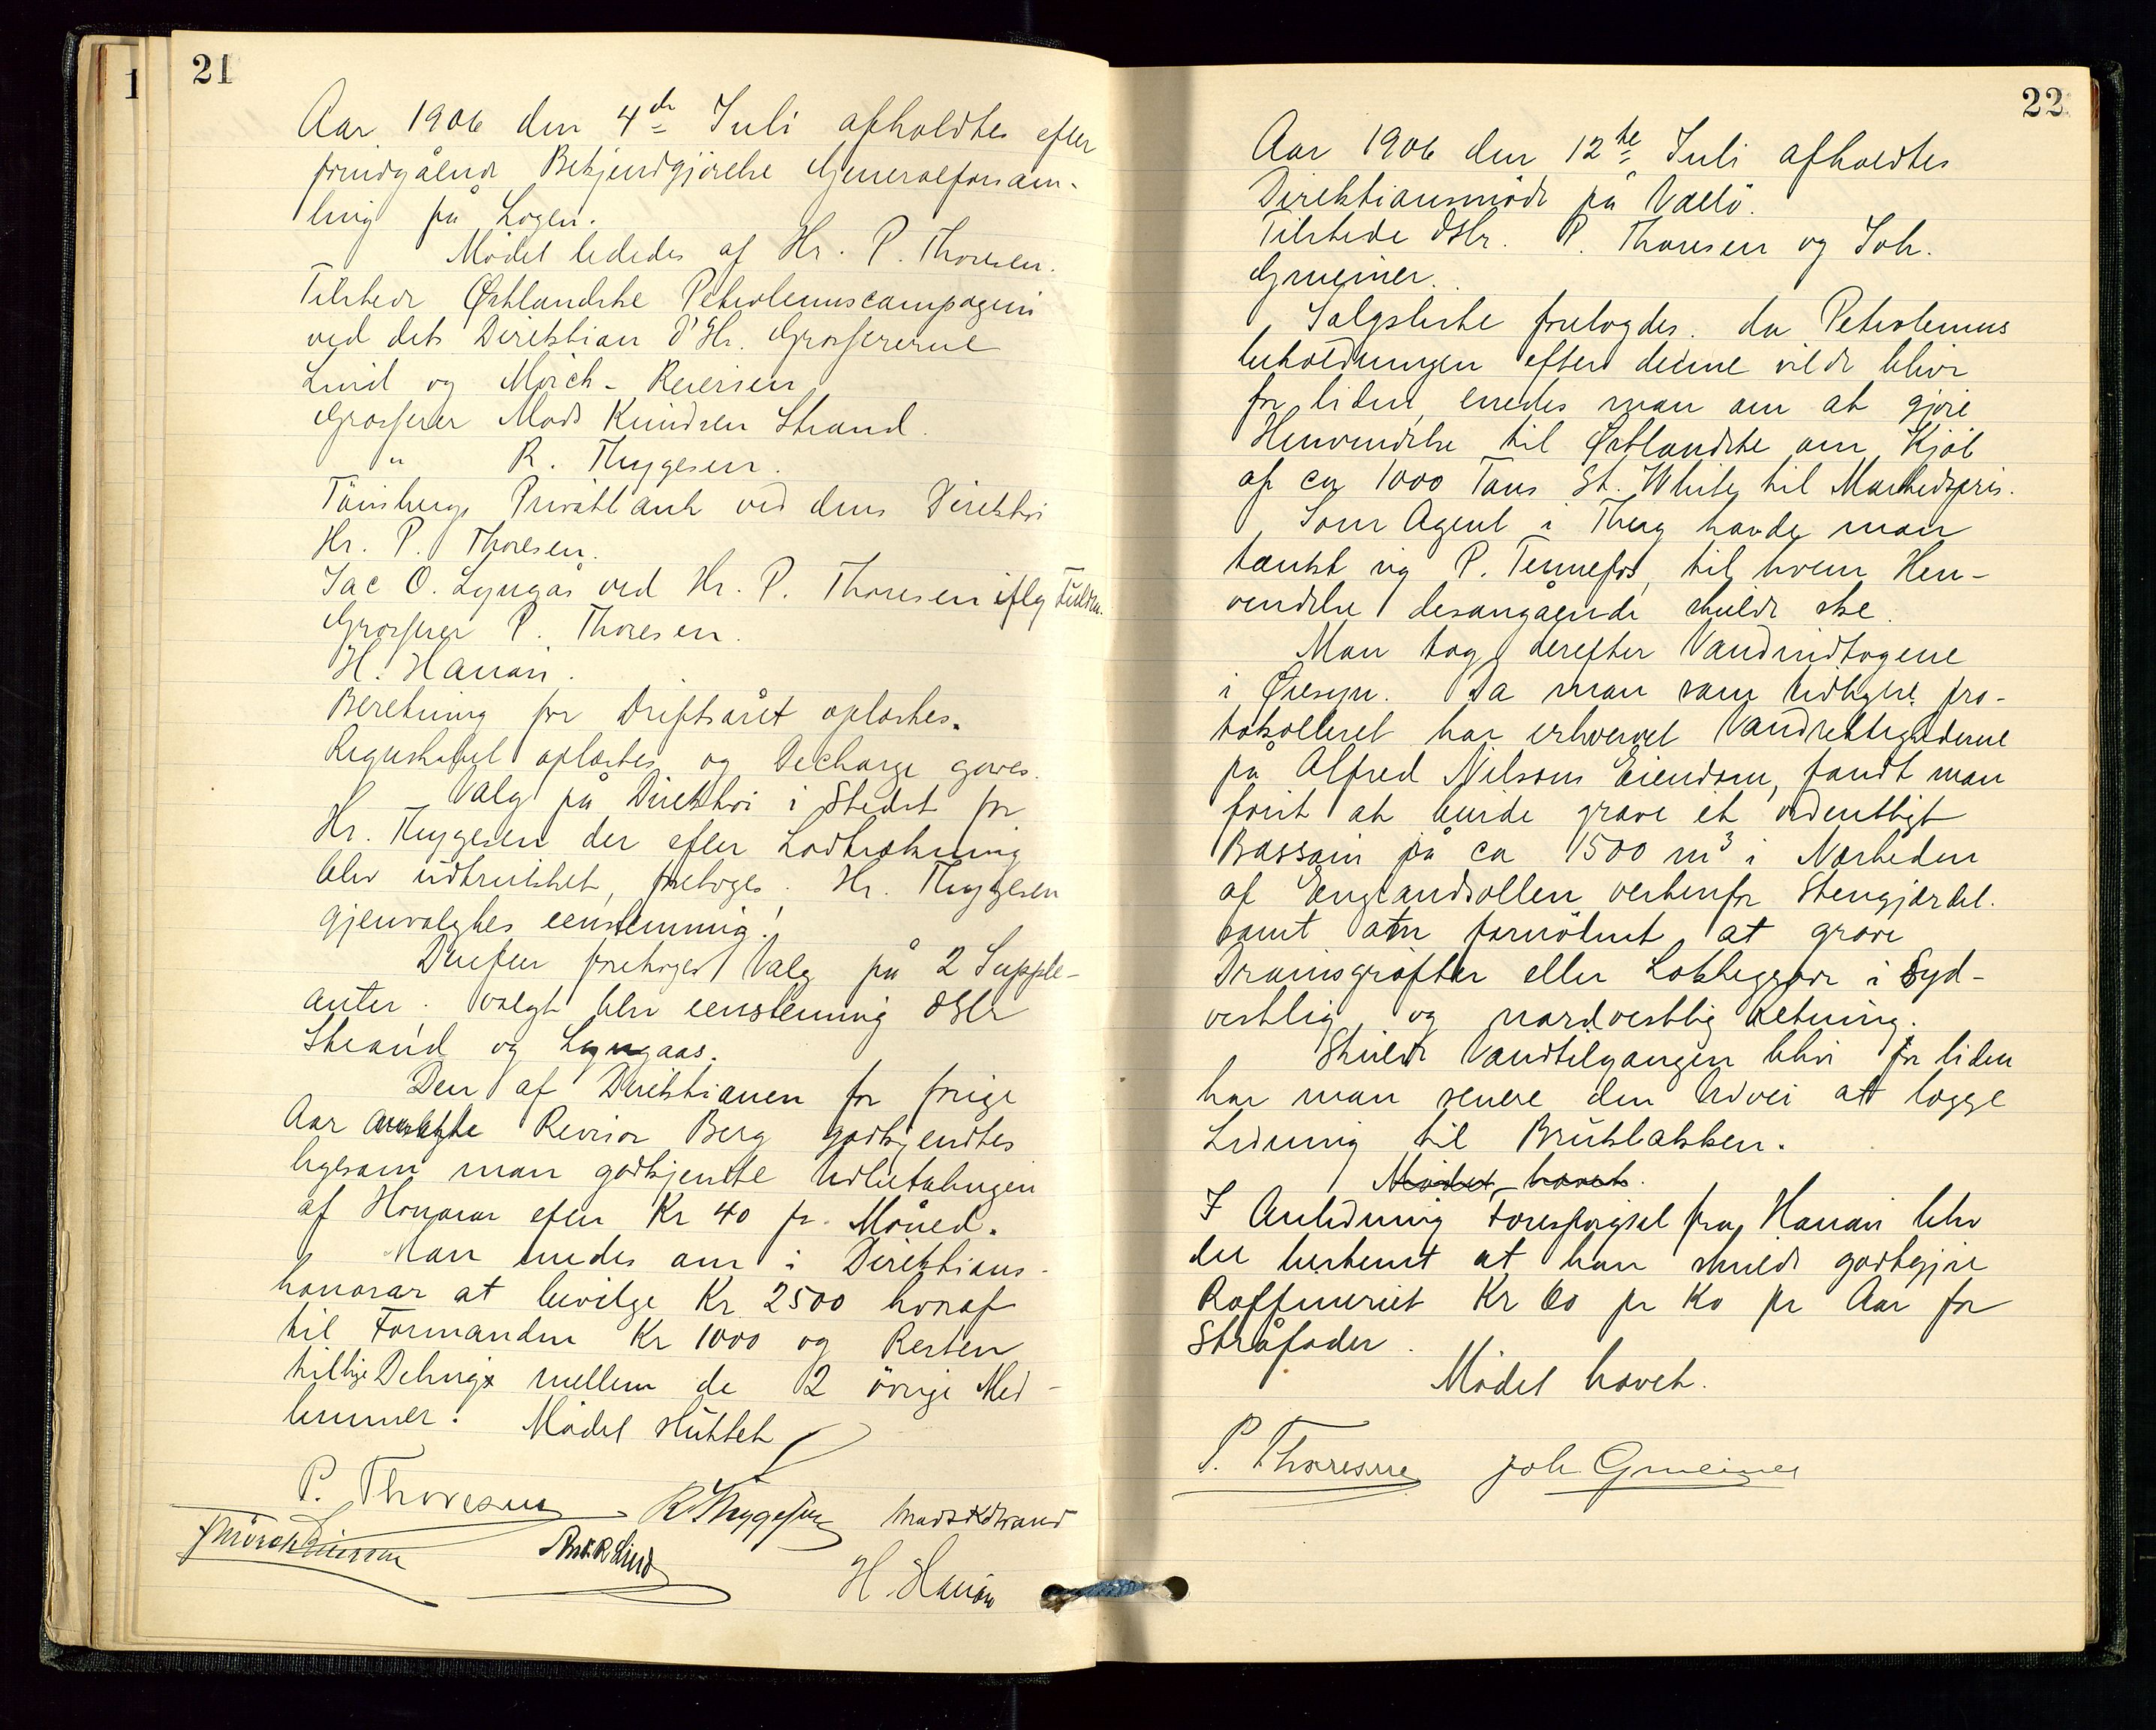 21
Aar 1906 den 4de Juli afholdtes efter
forudgående Bekjendtgjörelse Generalforsam-
ling på Logen.
Mödet lededes af Hr. P. Thoresen.
Tilstede Østlandske Petroleumscompagni
ved dets Direktion d'Hr. Grossererne
Lind og Mörch-Reiersen
Grosserer Mads Knudsen Strand.
" R. Thygesen.
Tönsbergs Privatbank ved dens Direktör
Hr. P. Thoresen.
Jac O. Lyngås ved Hr. P. Thoresen iflg Fuldm.
Grosserer P. Thoresen.
H. Hanan.
Beretning for Driftsåret oplæstes.
Regnskabet oplæstes og Decharge gaves.
Valg på Direktör i Stedet for
Hr. Thygesen der efter Lodtrækning
blev udtrukket, foretoges. Hr. Thygesen
gjenvalgtes eenstemmig.
Derefter foretoges Valg på 2 Supple-
anter. Valgt blev eenstemmig dHr
Strand og Lyngaas.
Den af Direktionen for forige
Aar ansatte Revisor Berg godkjendtes
ligesom man godkjendte Udbetalingen
af Honorar efter Kr 40 pr. Måned.
Man enedes om i Direktions-
honorar at bevilge Kr 2500 hvoraf
til Formanden Kr 1000 og Resten
tillige Deling mellem de 2 övrige Med-
lemmer. Mödet sluttet
P. Thoresen R Thygesen Mads K Strand
J Mörch Reiersen R Lind
H. Hanan
22
Aar 1906 den 12te Juli afholdtes
Direktionsmöde på Vallö.
Tilstede dHr. P. Thoresen og Joh.
Gmeiner.
Salgsliste forelogdes. da Petroleums
beholdningen efter denne vilde blive
for liden, enedes man om at gjöre
Henvendelse til Østlandske om Kjöb
af ca 1000 Tons St. White til Markedspris.
Som Agent i Tbrg havde man
tænkt sig P. Tennefos, til hvem Hen-
vendelse desangående skulde ske.
Man tog derefter Vandindtagene
i Øiesyn. Da man som tidligere pro-
tokolleret har erhvervet Vandrettighederne
på Alfred Nilsons Eiendom, fandt man
först at burde grave et ordentligt
Bassain på ca 1500 m3 i Nærheden
af Englandsollen vestenfor Stengjærdet.
samt om fornödent at grave
Drainsgröfter eller Lukkegrøv i Syd-
vestlig og nordvestlig Retning.
Skulde Vandtilgangen blive for liden
har man senere den Udvei at lægge
Ledning til Brukbakken.
Mödet hævet.
I Anledning Forespørgsel fra Hanan blev
det bestemt at han skulde godtgjöre
Raffineriet Kr 60 pr Ko pr Aar for
Stråfoder.
Mödet hævet.
P. Thoresen Joh. Gmeiner